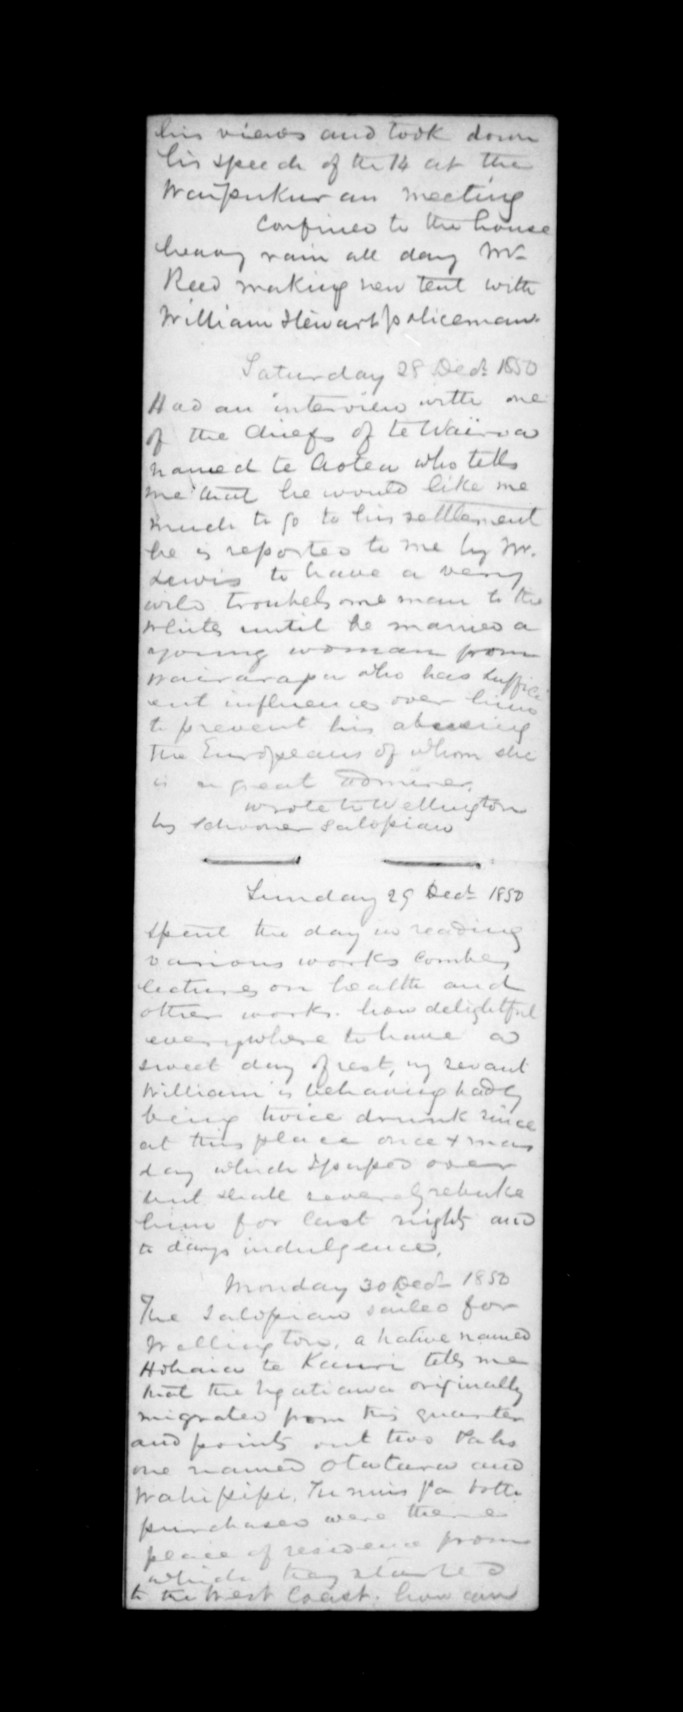 his views and took down
his speech of the 14 at the
Waipukurau meeting
Confined to the house
heavy rain all day Mr
Reed making new tent with
William Stewart policeman.
Saturday 28 Decr 1850
Had an interview with one
of the chiefs of te Wairoa
named te Aotea who tells
me that he would like me
much to go to his settlement
he is reported to me by Mr.
Lewis to have a very
wild troublesome man to the
whites until he married a
young woman from
Wairarapa who has suffici
ent influence over him
to prevent his abusing
the Europeans of whom she
is a great admirer.
wrote to Wellington
by Schooner Salopian
Sunday 29 Decr 1850
spent the day in reading
various works Combes
lectures on health and
other works. how delightful
everywhere to have a
sweet day of rest, my servant
William is behaving badly
being twice drunk since
at this place once Xmas
day which I passed over
but shall severely rebuke
him for last nights and
to days indulgence.
Monday 30 Decr 1850
The Salopian sailed for
Wellington, a native named
Hohaia te Kauri tells me
that the Ngatiawa originally
migrated from this quarter
and points out two Pahs
one named Otatara and
Wahipipi. pa both
purchased were there
place of residence from
which they started
to the West Coast. how can